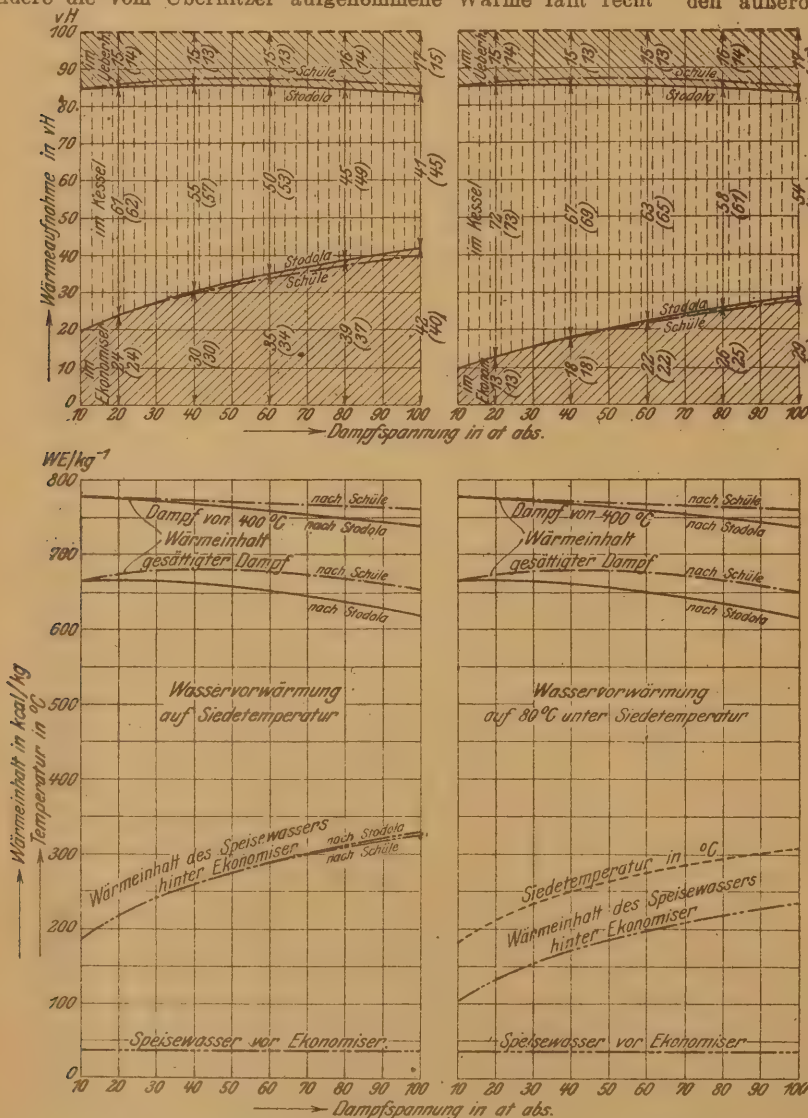 nders die vom Überhitzer aufgenommene Wärme fällt recht den äußero
vH
100
90
80
70
60
50
40
30
20
10
0
Wärmeaufnahme in vH
im Ueberh.
15 (14)
15 (13)
15 (13)
16 (14)
17 (15)
Schüle
Stodola
im Kessel
61 (62)
55 (57)
50 (53)
45 (49)
41 (45)
Stodola
Schüle
im Ekonomiser
24 (24)
30 (30)
35 (34)
39 (37)
42 (40)
10 20 30 40 50 60 70 80 90 100
Dampfspannung in at abs.
im Ueberh.
15 (14)
15 (13)
15 (13)
16 (14)
17
Schüle
Stodola
im Kessel
72 (73)
67 (69)
63 (65)
58 (61)
54
Stodola
Schüle
im Ekonom.
13 (13)
18 (18)
22 (22)
26 (25)
29
10 20 30 40 50 60 70 80 90 100
WE/kg⁻¹
800
700
600
500
400
300
200
100
0
Wärmeinhalt in kcal/kg
Temperatur in °C
nach Schüle
Dampf von 400 °C
nach Stodola
Wärmeinhalt
gesättigter Dampf
nach Schüle
nach Stodola
Wasservorwärmung
auf Siedetemperatur
Wärmeinhalt des Speisewassers
hinter Ekonomiser
nach Stodola
nach Schüle
Speisewasser vor Ekonomiser
10 20 30 40 50 60 70 80 90 100
Dampfspannung in at abs.
nach Schüle
Dampf von 400 °C
nach Stodola
Wärmeinhalt
gesättigter Dampf
nach Schüle
nach Stodola
Wasservorwärmung
auf 80°C unter Siedetemperatur
Siedetemperatur in °C
Wärmeinhalt des Speisewassers
hinter Ekonomiser
Speisewasser vor Ekonomiser
10 20 30 40 50 60 70 80 90 100